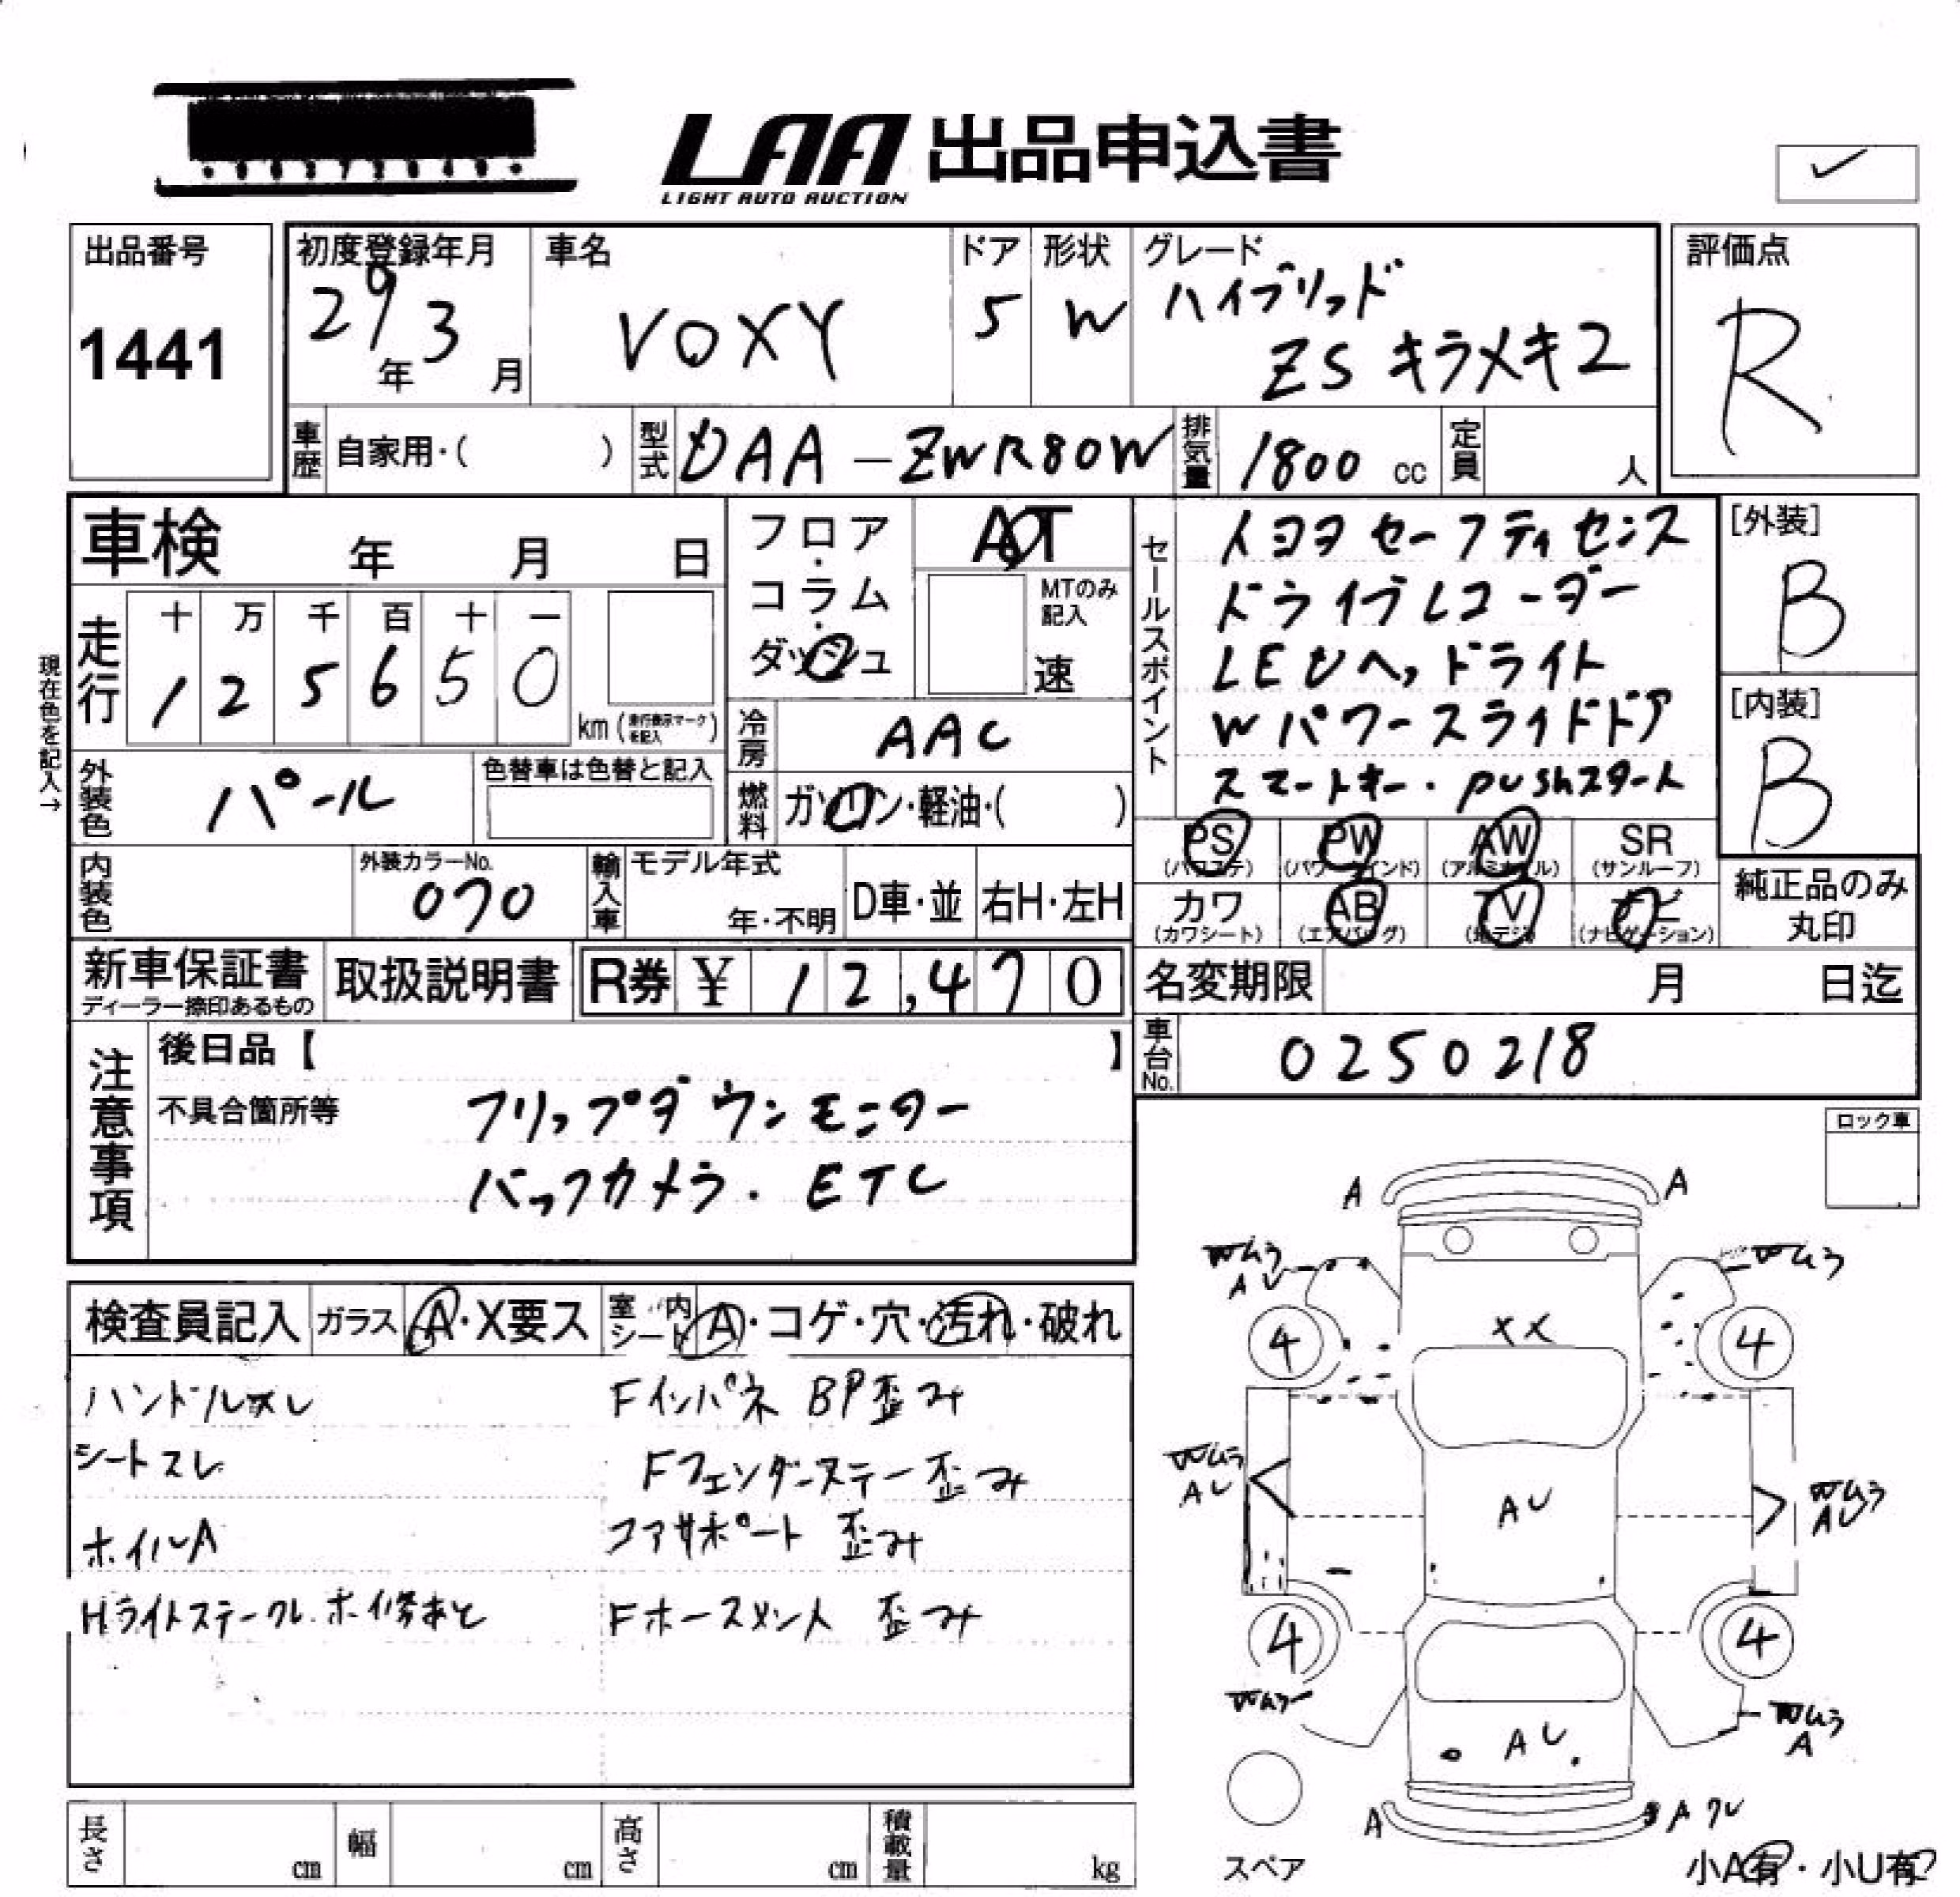 LAA 出品申込書
LIGHT AUTO AUCTION
出品番号
1441
初度登録年月
29年 3月
車名
VOXY
ドア
5
形状
W
グレード
ハイブリッド
ZS キラメキ2
評価点
R
車歴 自家用・( )
型式 DAA-ZWR80W
排気量 1800 cc
定員 人
車検 年 月 日
フロア・コラム・ダッシュ
AT
MTのみ記入
速
走行
十 万 千 百 十 一
1 2 5 6 5 0
km (走行表示マークを記入)
現在色を記入→
冷房 AAC
外装色 パール
色替車は色替と記入
燃料 ガソリン・軽油・( )
内装色
外装カラーNo.
070
輸入車 モデル年式
年・不明
D車・並
右H・左H
セールスポイント
トヨタ セーフティセンス
ドライブレコーダー
LEDヘッドライト
Wパワースライドドア
スマートキー・pushスタート
[外装]
B
[内装]
B
PS (パワステ)
PW (パワーウインド)
AW (アルミホイル)
SR (サンルーフ)
カワ (カワシート)
AB (エアバッグ)
TV (地デジ)
ナビ (ナビゲーション)
純正品のみ丸印
新車保証書
ディーラー捺印あるもの
取扱説明書
R券 ¥ 12,470
名変期限 月 日迄
車台No. 0250218
注意事項
後日品【 】
不具合箇所等
フリップダウンモニター
バックカメラ. ETC
ロック車
検査員記入
ガラス A・X要ス
室内シート A・コゲ・穴・汚れ・破れ
ハンドルスレ
シートスレ
ホイルA
Hライトステークレ. ホイ修あと
Fインパネ BP歪み
Fフェンダーステー歪み
コアサポート 歪み
Fホースメント 歪み
A A
Wムラ
AU
Wムラ
4 XX 4
Wムラ
AU
AU
Wムラ
AU
4 4
Wムラ
Wムラ
A
AU
A
A ワレ
スペア
小A有・小U有
長さ cm
幅 cm
高さ cm
積載量 kg